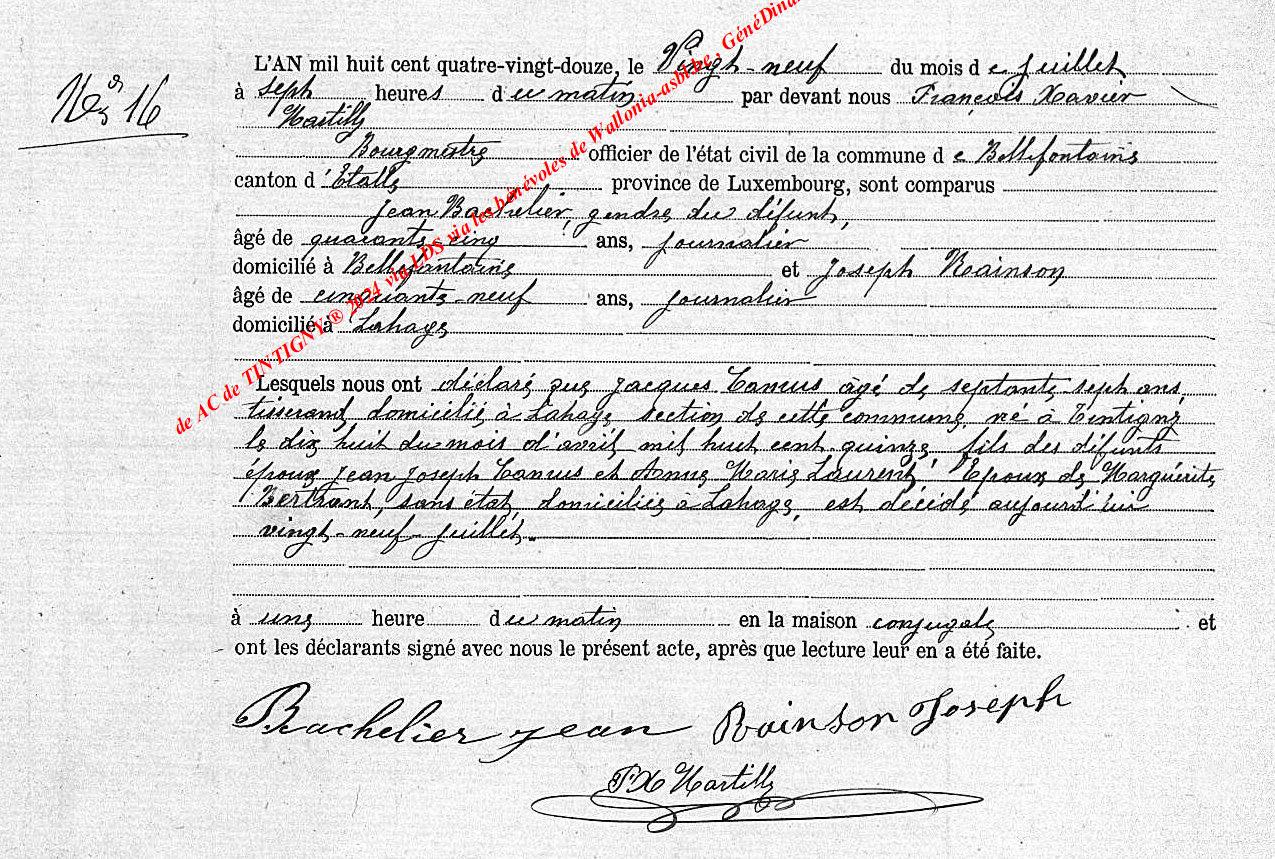 Nº 16
L'AN mil huit cent quatre-vingt-douze, le Vingt-neuf du mois de Juillet
à sept heures du matin par devant nous François Xavier
Bourgmestre officier de l'état civil de la commune de Bellefontaine
canton d'Etalle province de Luxembourg, sont comparus
Jean Bachelier, gendre du défunt,
âgé de quarante cinq ans, journalier
domicilié à Bellefontaine et Joseph Rainson
âgé de cinquante-neuf ans, journalier
domicilié à Lahage
Lesquels nous ont déclaré que Jacques Camus âgé de septante sept ans,
tisserand, domicilié à Lahage, section de cette commune, né à Tintigny
le dix huit du mois d'avril mil huit cent quinze, fils des défunts
époux Jean Joseph Camus et Anne Marie Laurent, Epoux de Marguérite
Bertrant, sans état, domiciliée à Lahage, est décédé aujourd'hui
vingt-neuf juillet.
à une heure du matin en la maison conjugale et
ont les déclarants signé avec nous le présent acte, après que lecture leur en a été faite.
Bachelier jean Rainson Joseph
de AC de TINTIGNY ® 2024 via LDS via les bénévoles de Wallonia-asbl.be , GénéDina